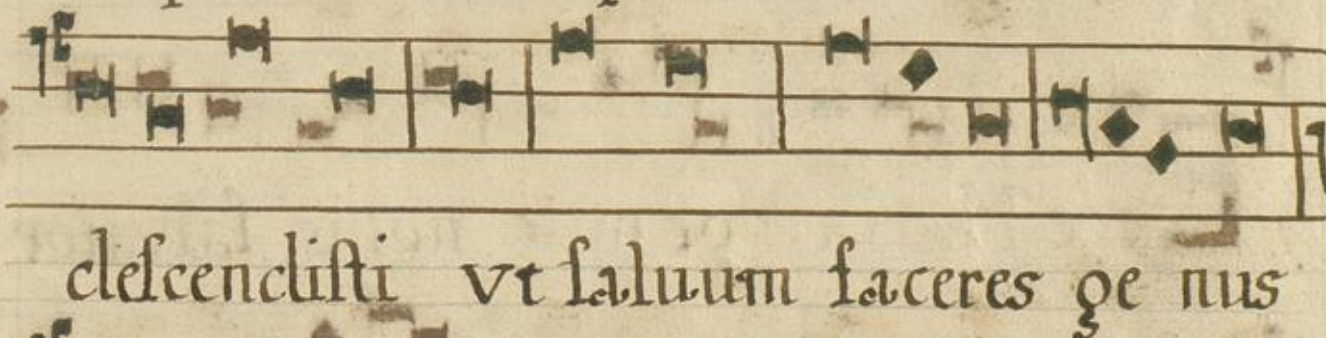 descendisti vt saluum faceres ge nus